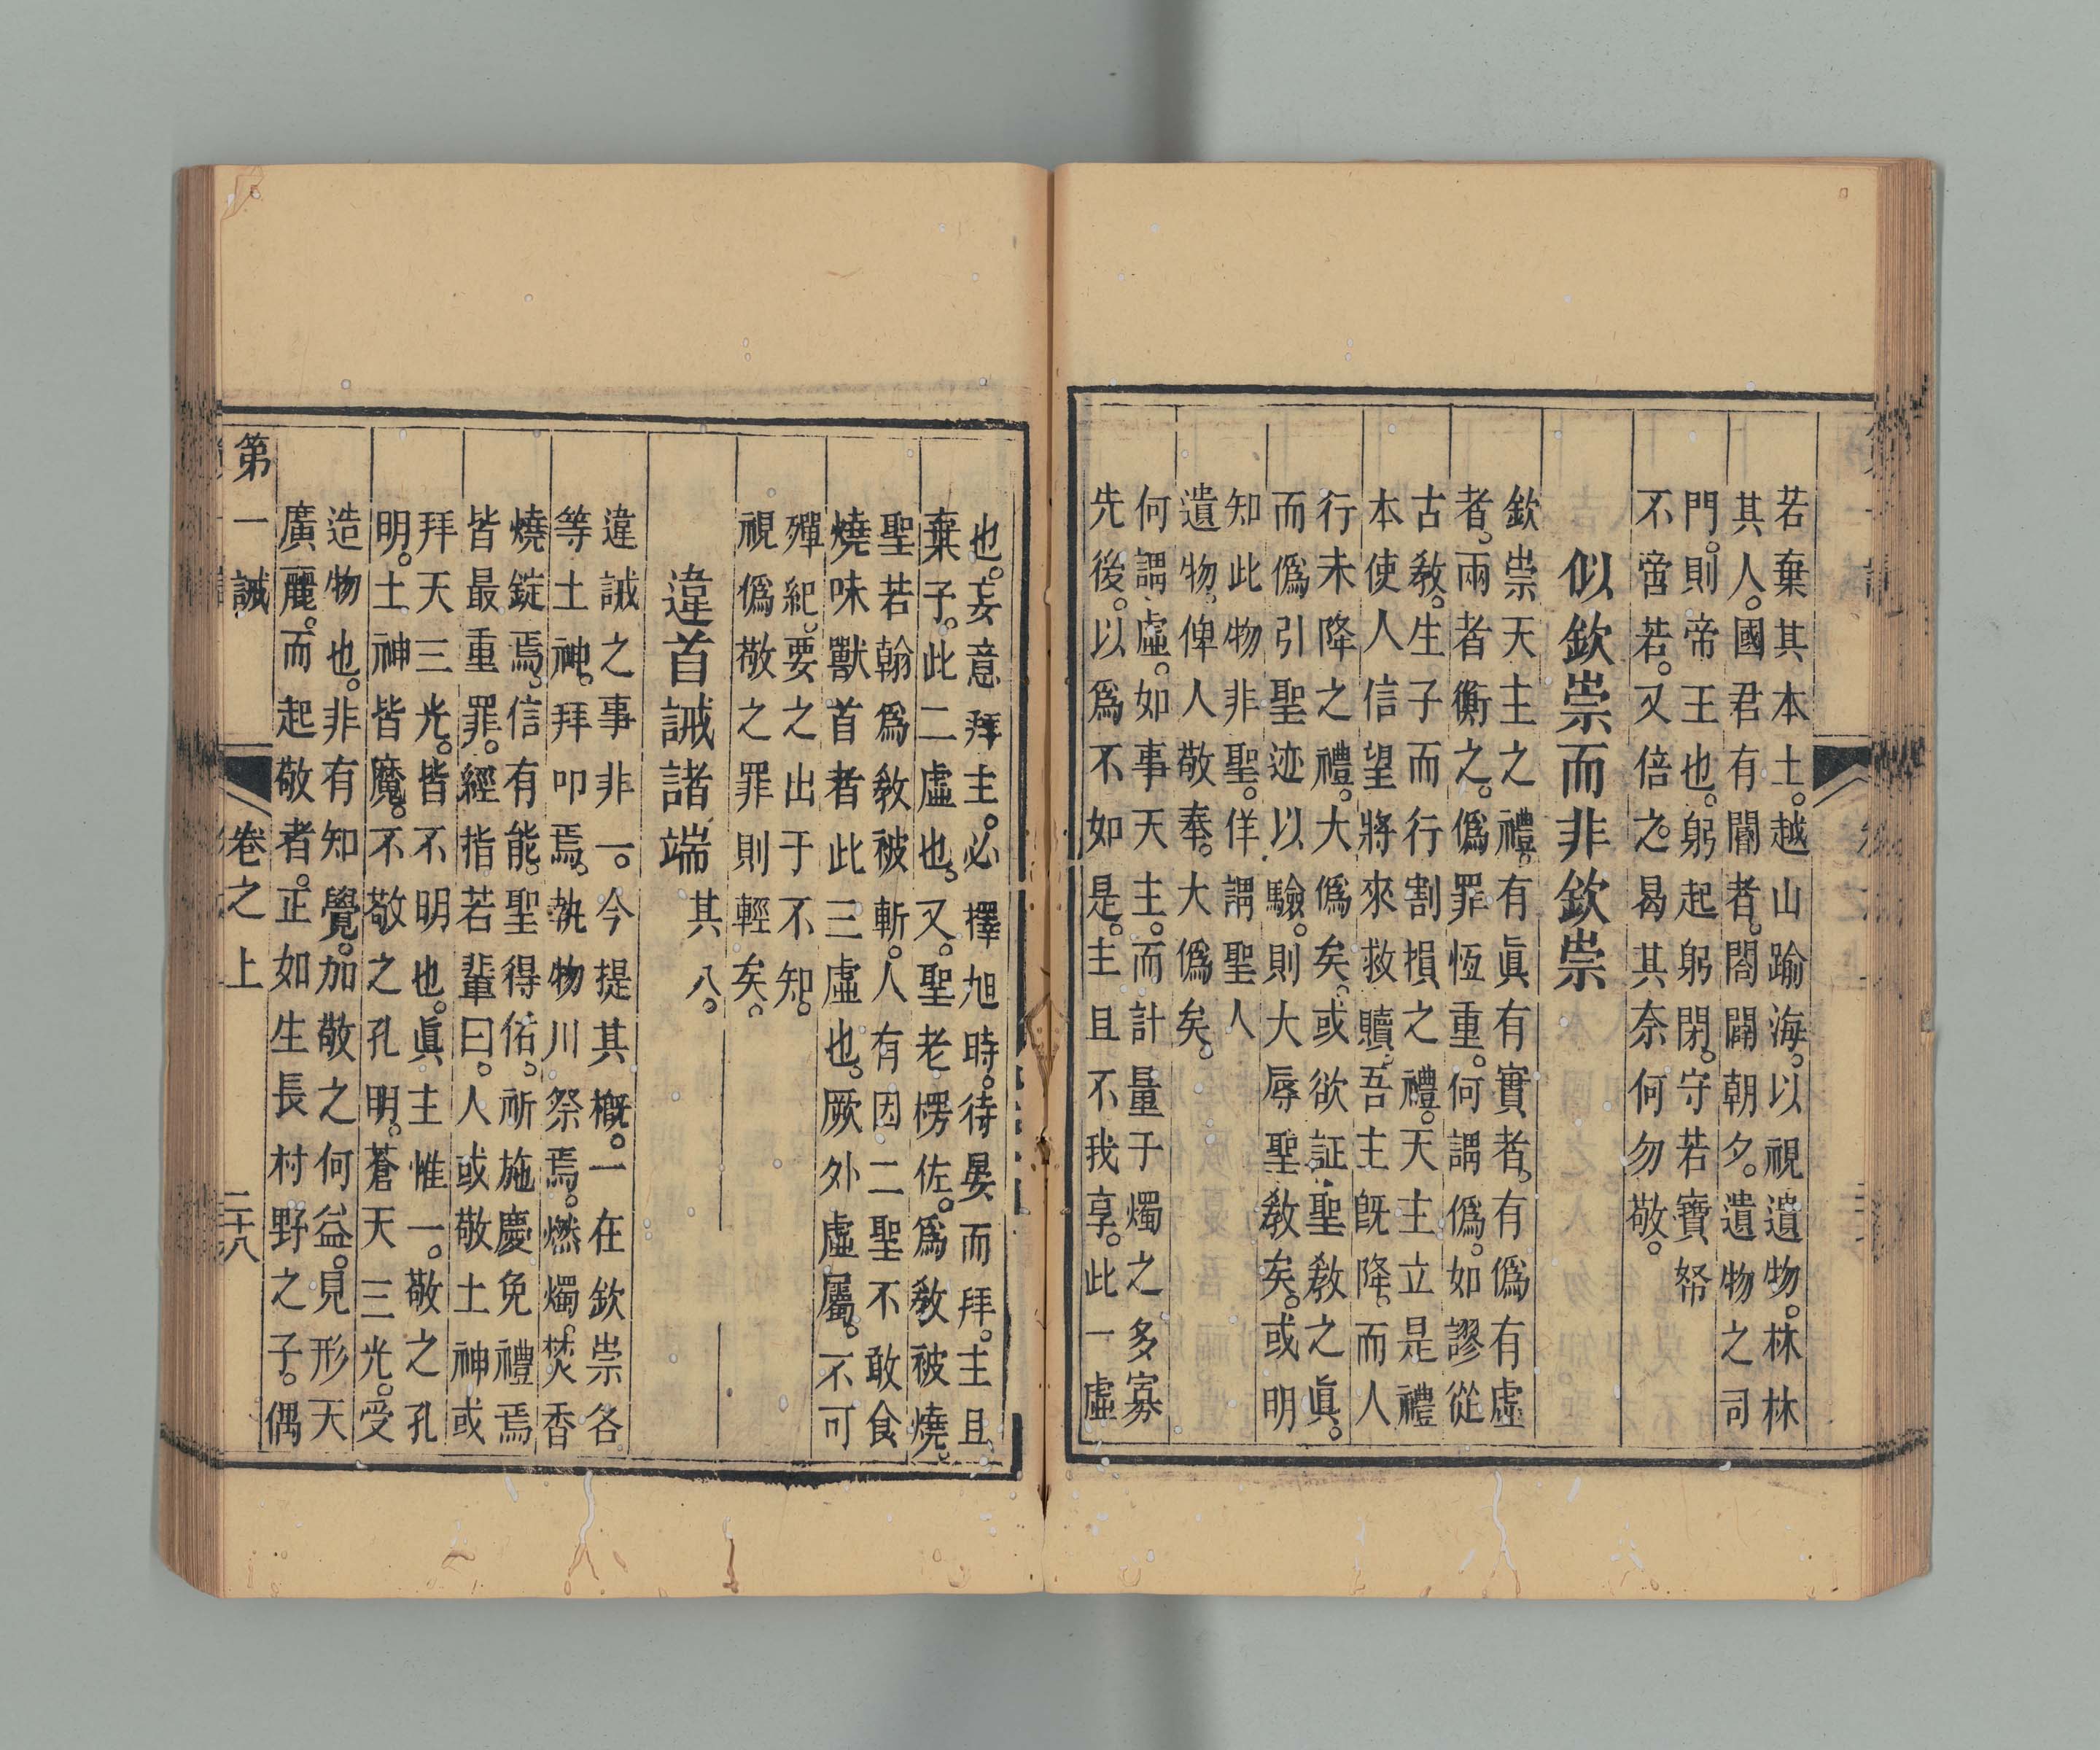 若棄其本土。越山踰海。以視遺物。林林
其人。國君有閽者。閤闢朝夕。遺物之司
門。則帝王也。躬起躬閉。守若寶帑
不啻若。又倍之。曷其奈何勿敬。
似欽崇而非欽崇
欽崇天主之禮。有眞有實者。有僞有虛
者。兩者衡之。僞罪恆重。何謂僞。如謬從
古敎。生子而行割損之禮。天主立是禮
本使人信望將來救贖。吾主旣降。而人
行未降之禮。大僞矣。或欲証聖敎之眞。
而僞引聖迹以驗。則大辱聖敎矣。或明
知此物非聖。佯謂聖人
遺物。俾人敬奉。大僞矣。
何謂虛。如事天主。而計量于燭之多寡
先後。以爲不如是。主且不我享。此一虛
也。妄意拜主。必擇旭時。待晏而拜。主且
棄子。此二虛也。又。聖老楞佐。爲敎被燒。
聖若翰爲敎被斬。人有因二聖不敢食
燒味獸首者此三虛也。厥外虛屬。不可
殫紀。要之出于不知。
視僞敬之罪則輕矣。
違首誡諸端 其八。
違誡之事非一。今提其槪。一在欽崇各
等土神。拜叩焉。執物川祭焉。燃燭。焚香
燒錠焉。信有能。聖得佑。祈施慶免禮焉
皆最重罪。經指若輩曰。人或敬土神或
拜天三光。皆不明也。眞主惟一。敬之孔
明。土神皆魔。不敬之孔明。蒼天三光。受
造物也。非有知覺。加敬之何益。見形天
廣麗。而起敬者。正如生長村野之子。偶
第一誡 卷之上 二十八